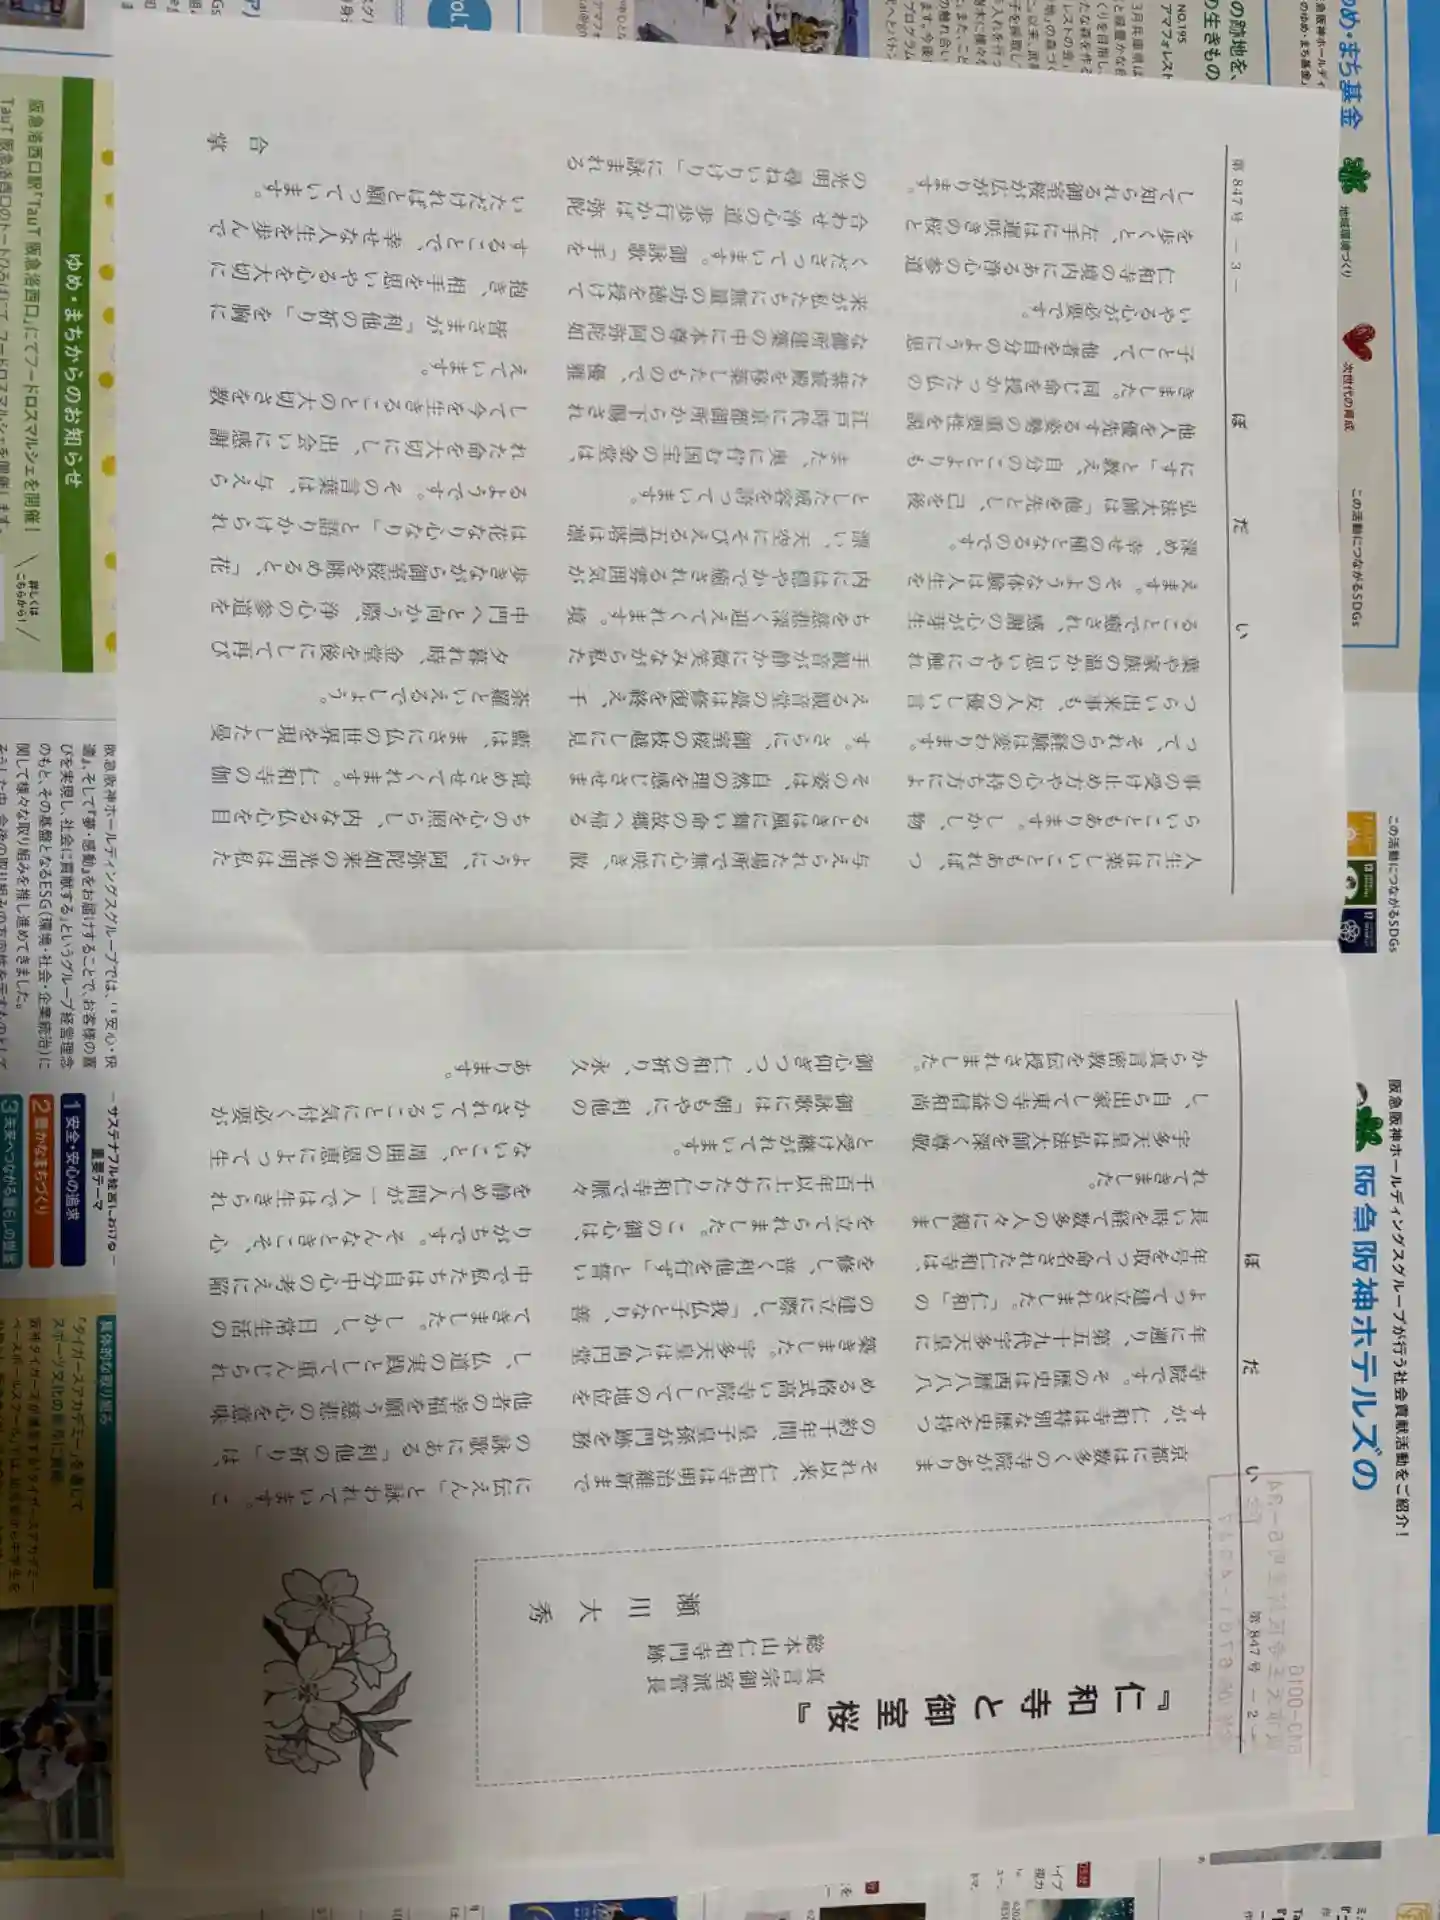 第847号 ー2ー
ぼだい
『仁和寺と御室桜』
真言宗御室派管長
総本山仁和寺門跡
瀬川大秀
京都には数多くの寺院がありま
すが、仁和寺は特別な歴史を持つ
寺院です。その歴史は西暦八八八
年に遡り、第五十九代宇多天皇に
よって建立されました。「仁和」の
年号を取って命名された仁和寺は、
長い時を経て数多の人々に親しま
れてきました。
宇多天皇は弘法大師を深く尊敬
し、自ら出家して東寺の益信和尚
から真言密教を伝授されました。
それ以来、仁和寺は明治維新まで
の約千年間、皇子皇孫が門跡を務
める格式高い寺院としての地位を
築きました。宇多天皇は八角円堂
の建立に際し、「我仏子となり、善
を修し、普く利他を行ず」と誓い
を立てられました。この御心は、
千百年以上にわたり仁和寺で脈々
と受け継がれています。
御詠歌には「朝もやに、利他の
御心仰ぎつつ、仁和の祈り、永久
に伝えん」と詠われています。こ
の詠歌にある「利他の祈り」は、
他者の幸福を願う慈悲の心を意味
し、仏道の実践として重んじられ
てきました。しかし、日常生活の
中で私たちは自分中心の考えに陥
りがちです。そんなときこそ、心
を静めて人間が一人では生きられ
ないこと、周囲の恩恵によって生
かされていることに気付く必要が
あります。
第847号 ー3ー
ぼだい
人生には楽しいこともあれば、つ
らいこともあります。しかし、物
事の受け止め方や心の持ち方によ
って、それらの経験は変わります。
つらい出来事も、友人の優しい言
葉や家族の温かい思いやりに触れ
ることで癒され、感謝の心が芽生
えます。そのような体験は人生を
深め、幸せの種となるのです。
弘法大師は「他を先とし、己を後
にす」と教え、自分のことよりも
他人を優先する姿勢の重要性を説
きました。同じ命を授かった仏の
子として、他者を自分のように思
いやる心が必要です。
仁和寺の境内にある浄心の参道
を歩くと、左手には遅咲きの桜と
して知られる御室桜が広がります。
与えられた場所で無心に咲き、散
るときは風に舞い命の故郷へ帰る
その姿は、自然の理を感じさせま
す。さらに、御室桜の枝越しに見
える観音堂の甍は修復を終え、千
手観音が静かに微笑みながら私た
ちを慈悲深く迎えてくれます。境
内には穏やかで癒される雰囲気が
漂い、天空にそびえる五重塔は凛
とした威容を誇っています。
また、奥に佇む国宝の金堂は、
江戸時代に京都御所から下賜され
た紫宸殿を移築したもので、優雅
な御所建築の中に本尊の阿弥陀如
来が私たちに無量の功徳を授けて
くださっています。御詠歌「手を
合わせ浄心の道 歩歩行かば 弥陀
の光明 尋ねいりけり」に詠まれる
ように、阿弥陀如来の光明は私た
ちの心を照らし、内なる仏心を目
覚めさせてくれます。仁和寺の伽
藍は、まさに仏の世界を現した曼
荼羅といえるでしょう。
夕暮れ時、金堂を後にして再び
中門へと向かう際、浄心の参道を
歩きながら御室桜を眺めると、「花
は花なり心なり」と語りかけられ
るようです。その言葉は、与えら
れた命を大切にし、出会いに感謝
して今を生きることの大切さを教
えています。
皆さまが「利他の祈り」を胸に
抱き、相手を思いやる心を大切に
することで、幸せな人生を歩んで
いただければと願っています。
合掌
阪急阪神ホールディングスグループが行う社会貢献活動をご紹介！
阪急阪神ホテルズの
この活動につながるSDGs
この活動につながるSDGs
地域環境づくり
次世代の育成
ゆめ・まちからのお知らせ
阪急洛西口駅「TauT 阪急洛西口」にてフードロスマルシェを開催！
詳しくは
こちらから！
阪急阪神ホールディングスグループでは、「安心・快
適」、そして「夢・感動」をお届けすることで、お客様の喜
びを実現し、社会に貢献する」というグループ経営理念
のもと、その基盤となるESG(環境・社会・企業統治)に
関して様々な取り組みを推し進めてきました。
重要テーマ
1 安全・安心の追求
2 豊かなまちづくり
3 未来へつながる暮らしの提案
具体的な取り組み
「タイガースアカデミー」を通じて